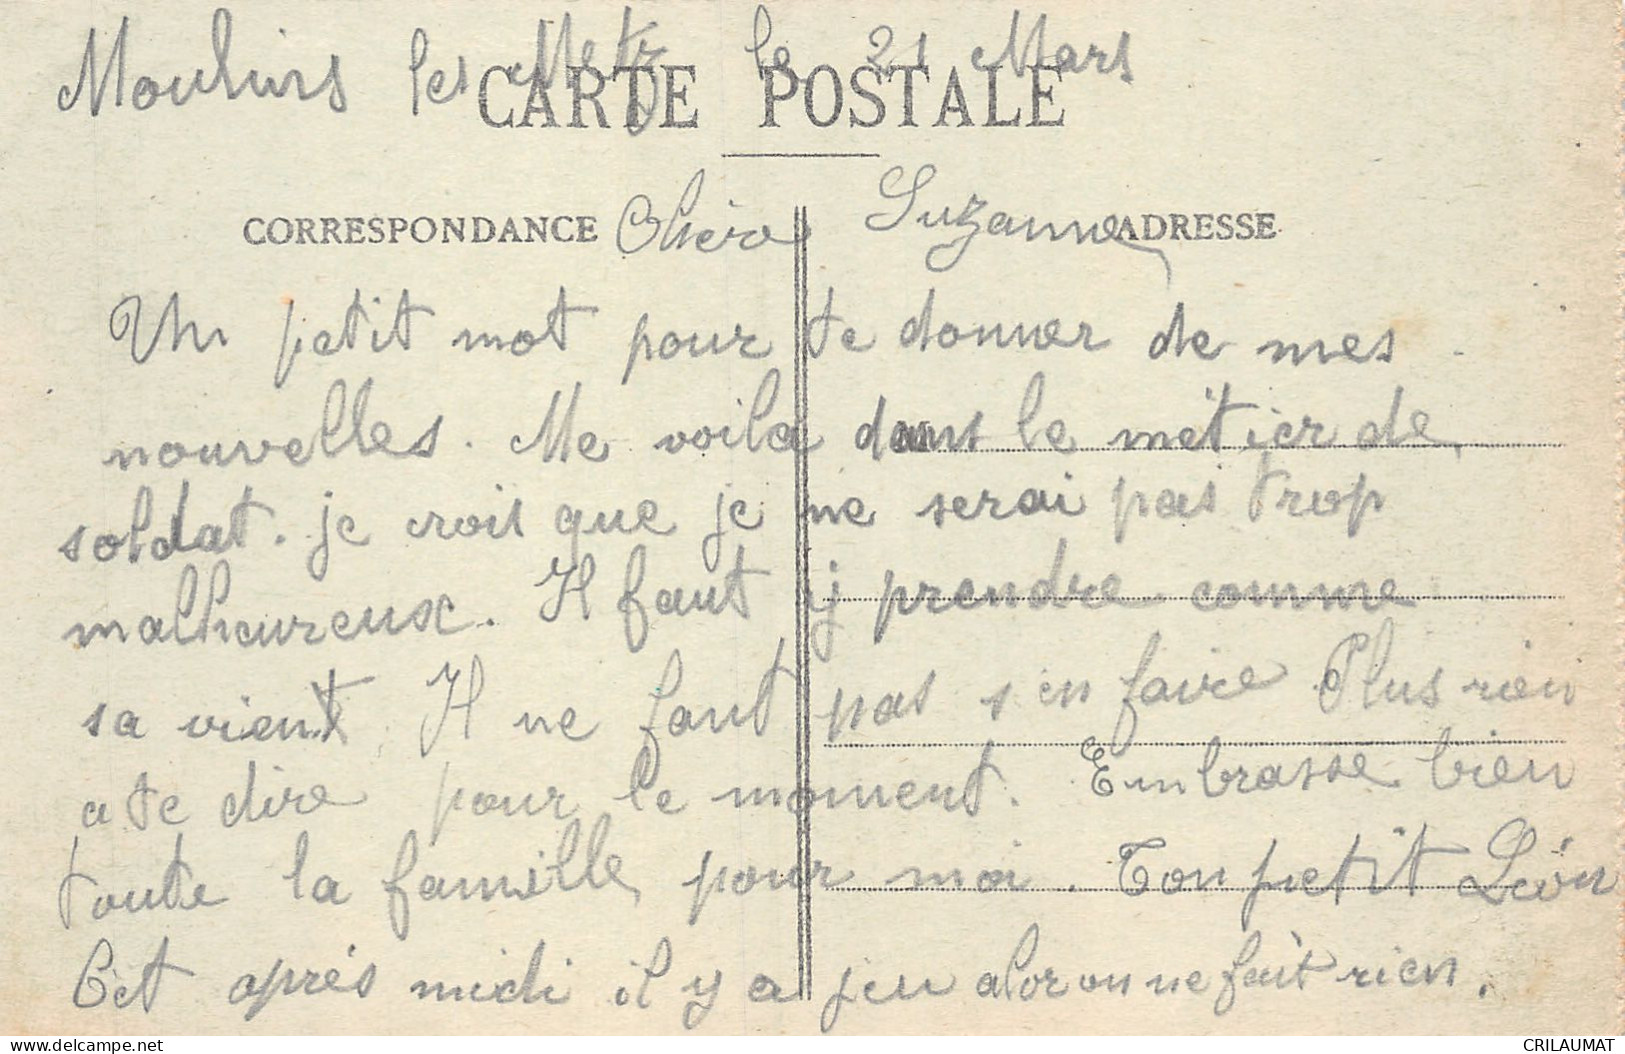 Moulins les Metz le 21 Mars
CARTE POSTALE
CORRESPONDANCE Chère Suzanne ADRESSE
Un petit mot pour te donner de mes
nouvelles. Me voila dans le métier de
soldat. je crois que je ne serai pas trop
malheureux. Il faut y prendre comme
sa vient. Il ne faut pas s'en faire Plus rien
a te dire pour le moment. Embrasse bien
toute la famille pour moi. Ton petit Léon
Cet après midi il y a jeu alor on ne fait rien.
www.delcampe.net
CRILAUMAT